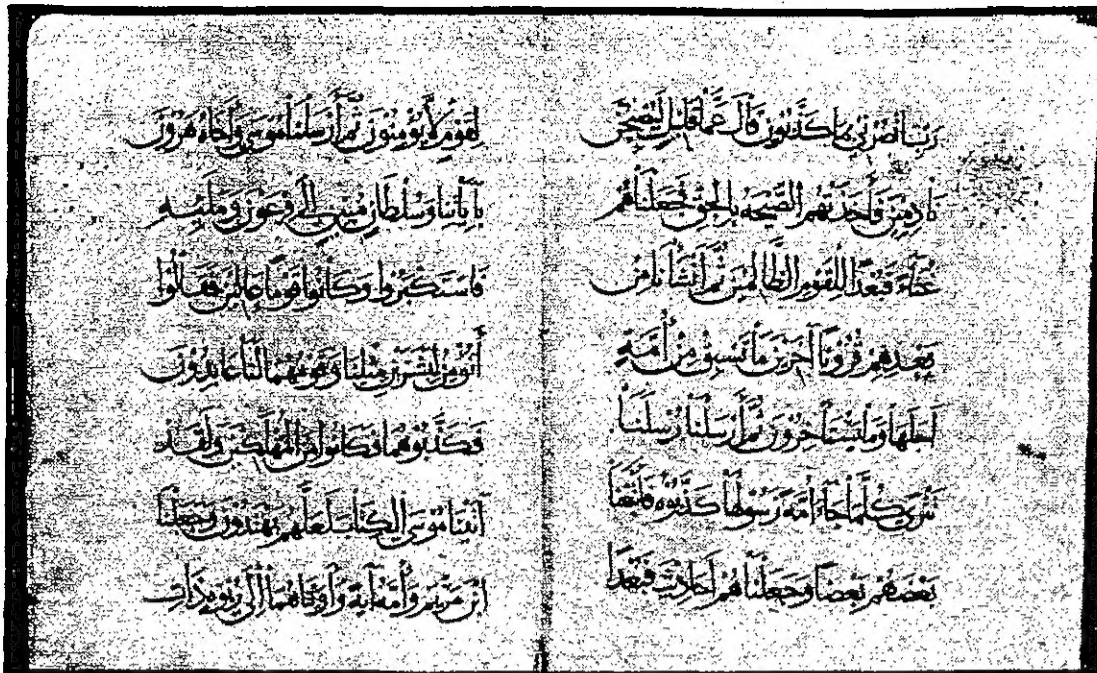 رَبِّ انصُرْنِي بِمَا كَذَّبُونِ قَالَ عَمَّا قَلِيلٍ لَيُصْبِحُنَّ
نَادِمِينَ فَأَخَذَتْهُمُ الصَّيْحَةُ بِالْحَقِّ فَجَعَلْنَاهُمْ
غُثَاءً فَبُعْدًا لِلْقَوْمِ الظَّالِمِينَ ثُمَّ أَنْشَأْنَا مِنْ
بَعْدِهِمْ قُرُونًا آخَرِينَ مَا تَسْبِقُ مِنْ أُمَّةٍ
أَجَلَهَا وَمَا يَسْتَأْخِرُونَ ثُمَّ أَرْسَلْنَا رُسُلَنَا
تَتْرَى كُلَّمَا جَاءَ أُمَّةً رَسُولُهَا كَذَّبُوهُ فَأَتْبَعْنَا
بَعْضَهُمْ بَعْضًا وَجَعَلْنَاهُمْ أَحَادِيثَ فَبُعْدًا
لِقَوْمٍ لَا يُؤْمِنُونَ ثُمَّ أَرْسَلْنَا مُوسَى وَأَخَاهُ هَرُونَ
بِآيَاتِنَا وَسُلْطَانٍ مُبِينٍ إِلَى فِرْعَوْنَ وَمَلَئِهِ
فَاسْتَكْبَرُوا وَكَانُوا قَوْمًا عَالِينَ فَقَالُوا
أَنُؤْمِنُ لِبَشَرَيْنِ مِثْلِنَا وَقَوْمُهُمَا لَنَا عَابِدُونَ
فَكَذَّبُوهُمَا فَكَانُوا مِنَ الْمُهْلَكِينَ وَلَقَدْ
آتَيْنَا مُوسَى الْكِتَابَ لَعَلَّهُمْ يَهْتَدُونَ وَجَعَلْنَا
ابْنَ مَرْيَمَ وَأُمَّهُ آيَةً وَآوَيْنَاهُمَا إِلَى رَبْوَةٍ ذَاتِ